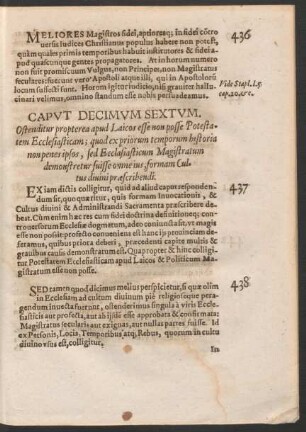 MELIORES Magistros fidei, aptiores q; in fidei cōtro
uersijs iudices Christianus populus habere non potest,
quàm quales primis temporibus habuit institutores & fidei a-
pud quascunque gentes propagatores. At in horum numero
non fuit promiscuum Vulgus, non Principis, non Magistratus
seculares: fuerunt vero Apostoli atque illi, qui in Apostolorū
locum successêre sunt. Horum igitur iudicio, nisi grauiter hallu-
cinari velimus, omnino standum esse nobis persuadeamus.
436
Vide Stapl. l.7.
cap.20, &c.
CAPVT DECIMVM SEXTVM.
Ostenditur propterea apud Laicos esse non posse Potesta-
tem Ecclesiasticam; quod ex priorum temporum historia
non penes ipsos, sed Ecclesiasticum Magistratum
demonstretur fuisse omne ius, formam Cul-
tus diuini præscribendi.
EX iam dictis colligitur, quid ad aliud caput responden-
dum sit, quo quæritur, quis formam Inuocationis, &
Cultus diuini & Administrandi Sacramenta præscribere de-
beat. Cùm enim hæc res cum fidei doctrina definitione q; con-
trouersorum Ecclesiæ dogmatum, adeo coniuncta sit, vt magis
esse non possit: profecto conueniens est hanc ijs prouinciam de-
feramus, quibus priora deberi, præcedenti capite multis &
grauibus causis demonstratum est. Quapropter & hinc colligi-
tur, Potestatem Ecclesiasticam apud Laicos & Politicum Ma-
gistratum esse non posse.
437
SED tamen quod dicimus melius perspicietur, si quæ olim
in Ecclesiam ad cultum diuinum piè religioseque peragen-
dum inuecta fuerunt, ostenderimus singula à viris Eccle-
siasticis aut profecta, aut ab ijsdē esse approbata & confirmata:
Magistratus secularis aut exiguas, aut nullas partes fuisse. Id
ex Personis, Locis, Temporibus atq; Rebus, quorum in cultu
diuino vsus est, colligitur.
438
In